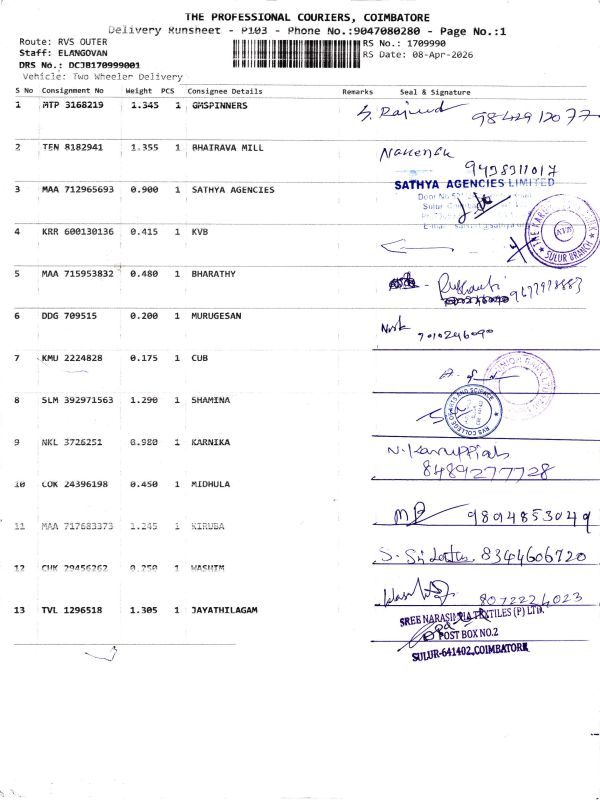 THE PROFESSIONAL COURIERS, COIMBATORE
Delivery Runsheet - P103 - Phone No.:9047080280 - Page No.:1
Route: RVS OUTER
RS No.: 1709990
Staff: ELANGOVAN
RS Date: 08-Apr-2026
DRS No.: DCJB170999001
Vehicle: Two Wheeler Delivery
S No Consignment No Weight PCS Consignee Details Remarks Seal & Signature
1 MTP 3168219 1.345 1 GMSPINNERS
98429 12077
2 TEN 8182941 1.355 1 BHAIRAVA MILL
9498311017
3 MAA 712965693 0.900 1 SATHYA AGENCIES
SATHYA AGENCIES LIMITED
4 KRR 600130136 0.415 1 KVB
KVB
SULUR BRANCH
5 MAA 715953832 0.480 1 BHARATHY
6 DDG 709515 0.200 1 MURUGESAN
7010246090
7 KMU 2224828 0.175 1 CUB
8 SLM 392971563 1.290 1 SHAMINA
RVS COLLEGE OF ARTS AND SCIENCE
9 NKL 3726251 0.980 1 KARNIKA
N. Karuppiah
8489277728
10 COK 24396198 0.450 1 MIDHULA
9894853049
11 MAA 717683373 1.245 1 KIRUBA
8344606720
12 CHK 29456262 0.250 1 WASHIM
8072224023
13 TVL 1296518 1.305 1 JAYATHILAGAM
SREE NARASIMHA TEXTILES (P) LTD.
POST BOX NO.2
SULUR-641402,COIMBATORE